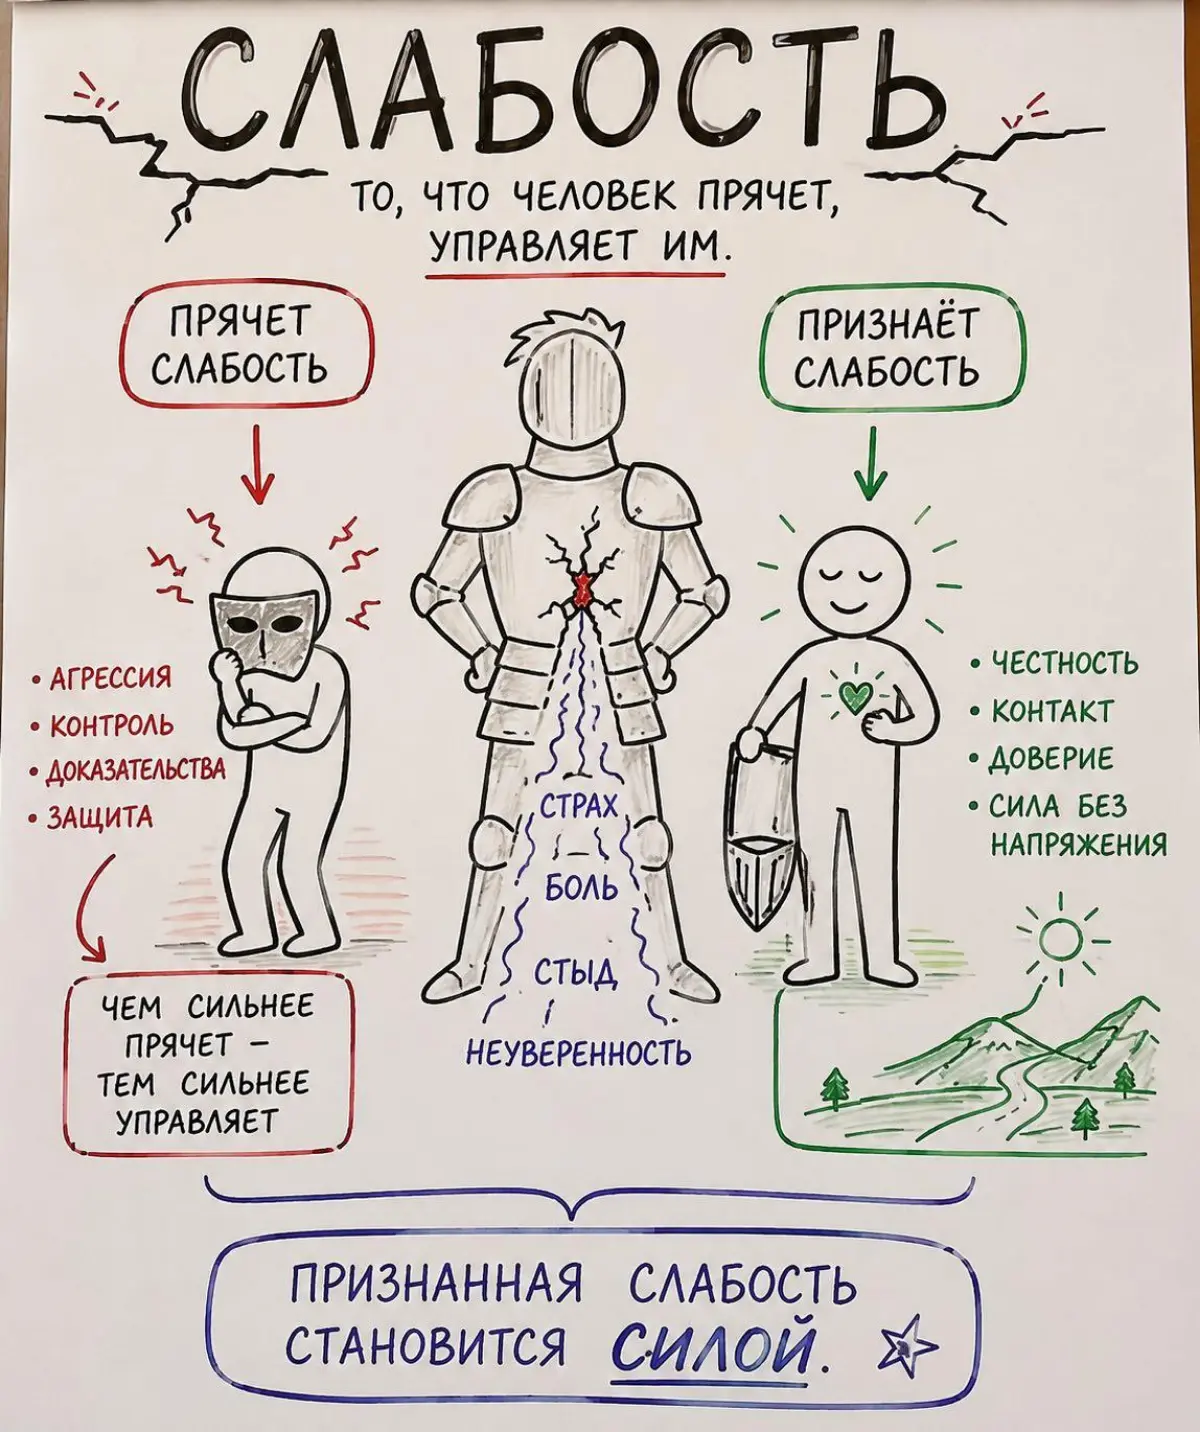 СЛАБОСТЬ
ТО, ЧТО ЧЕЛОВЕК ПРЯЧЕТ,
УПРАВЛЯЕТ ИМ.
ПРЯЧЕТ
СЛАБОСТЬ
• АГРЕССИЯ
• КОНТРОЛЬ
• ДОКАЗАТЕЛЬСТВА
• ЗАЩИТА
ЧЕМ СИЛЬНЕЕ
ПРЯЧЕТ –
ТЕМ СИЛЬНЕЕ
УПРАВЛЯЕТ
СТРАХ
БОЛЬ
СТЫД
НЕУВЕРЕННОСТЬ
ПРИЗНАЁТ
СЛАБОСТЬ
• ЧЕСТНОСТЬ
• КОНТАКТ
• ДОВЕРИЕ
• СИЛА БЕЗ
НАПРЯЖЕНИЯ
ПРИЗНАННАЯ СЛАБОСТЬ
СТАНОВИТСЯ СИЛОЙ.